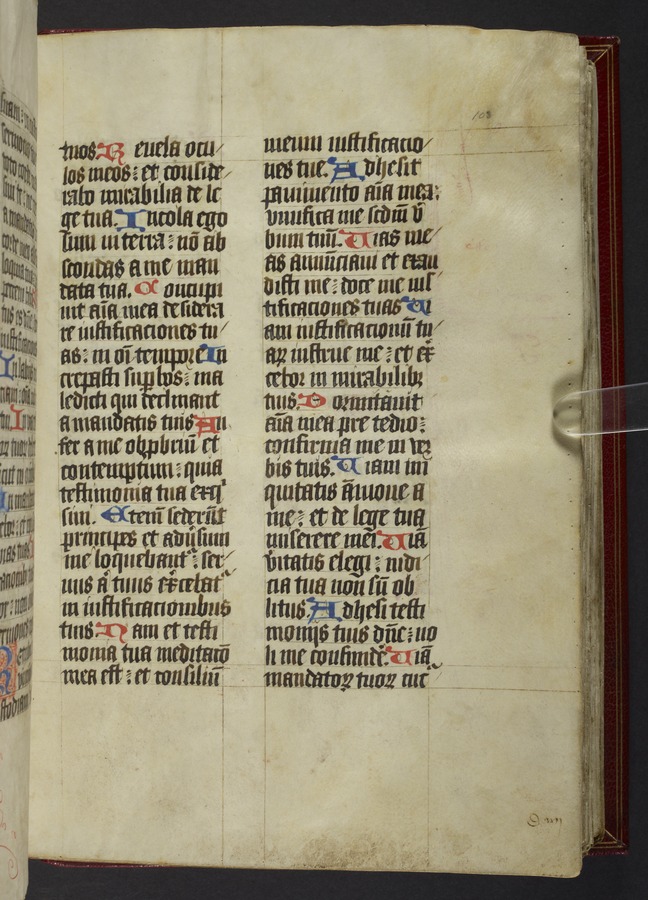 108
tuos. Reuela ocu/
los meos: et conside/
rabo mirabilia de le
ge tua. Incola ego
sum in terra: nō ab
scondas a me man
data tua. Concupi
uit aīa mea desidera
re iustificaciones tu/
as: in oī tempore. In
crepasti suꝑbos: ma
ledicti qui declinant
a mandatis tuis. Au
fer a me obpbriū et
contemptum: quia
testimonia tua exq
siui. Etem̄ sederūt
principes et adūsum
me loquebant᷑: ser/
uus ā tuus excebat᷑
in iustificacionibus
tuis. Nam et testi
monia tua meditacō
mea est: et consiliū
meum iustificacio/
nes tue. Adhesit
pauimento aīa mea:
viuifica me scdm̄ v̄
bum tuū. Uias me/
as annūciaui et exau
disti me: doce me ius/
tificaciones tuas. Ui
am iustificacionū tu/
aꝝ instrue me: et ex̄
cebor in mirabilibꝫ
tuis. Dormitauit
aīa mea pre tedio:
confirma me in ver
bis tuis. Uiam ini
quitatis āmoue a
me: et de lege tua
miserere mei. Uiā
v̄itatis elegi: iudi
cia tua non sū ob
litus. Adhesi testi
moniis tuis dn̄e: no
li me confunde᷑. Uiā
mandatoꝝ tuoꝝ cuc᷑